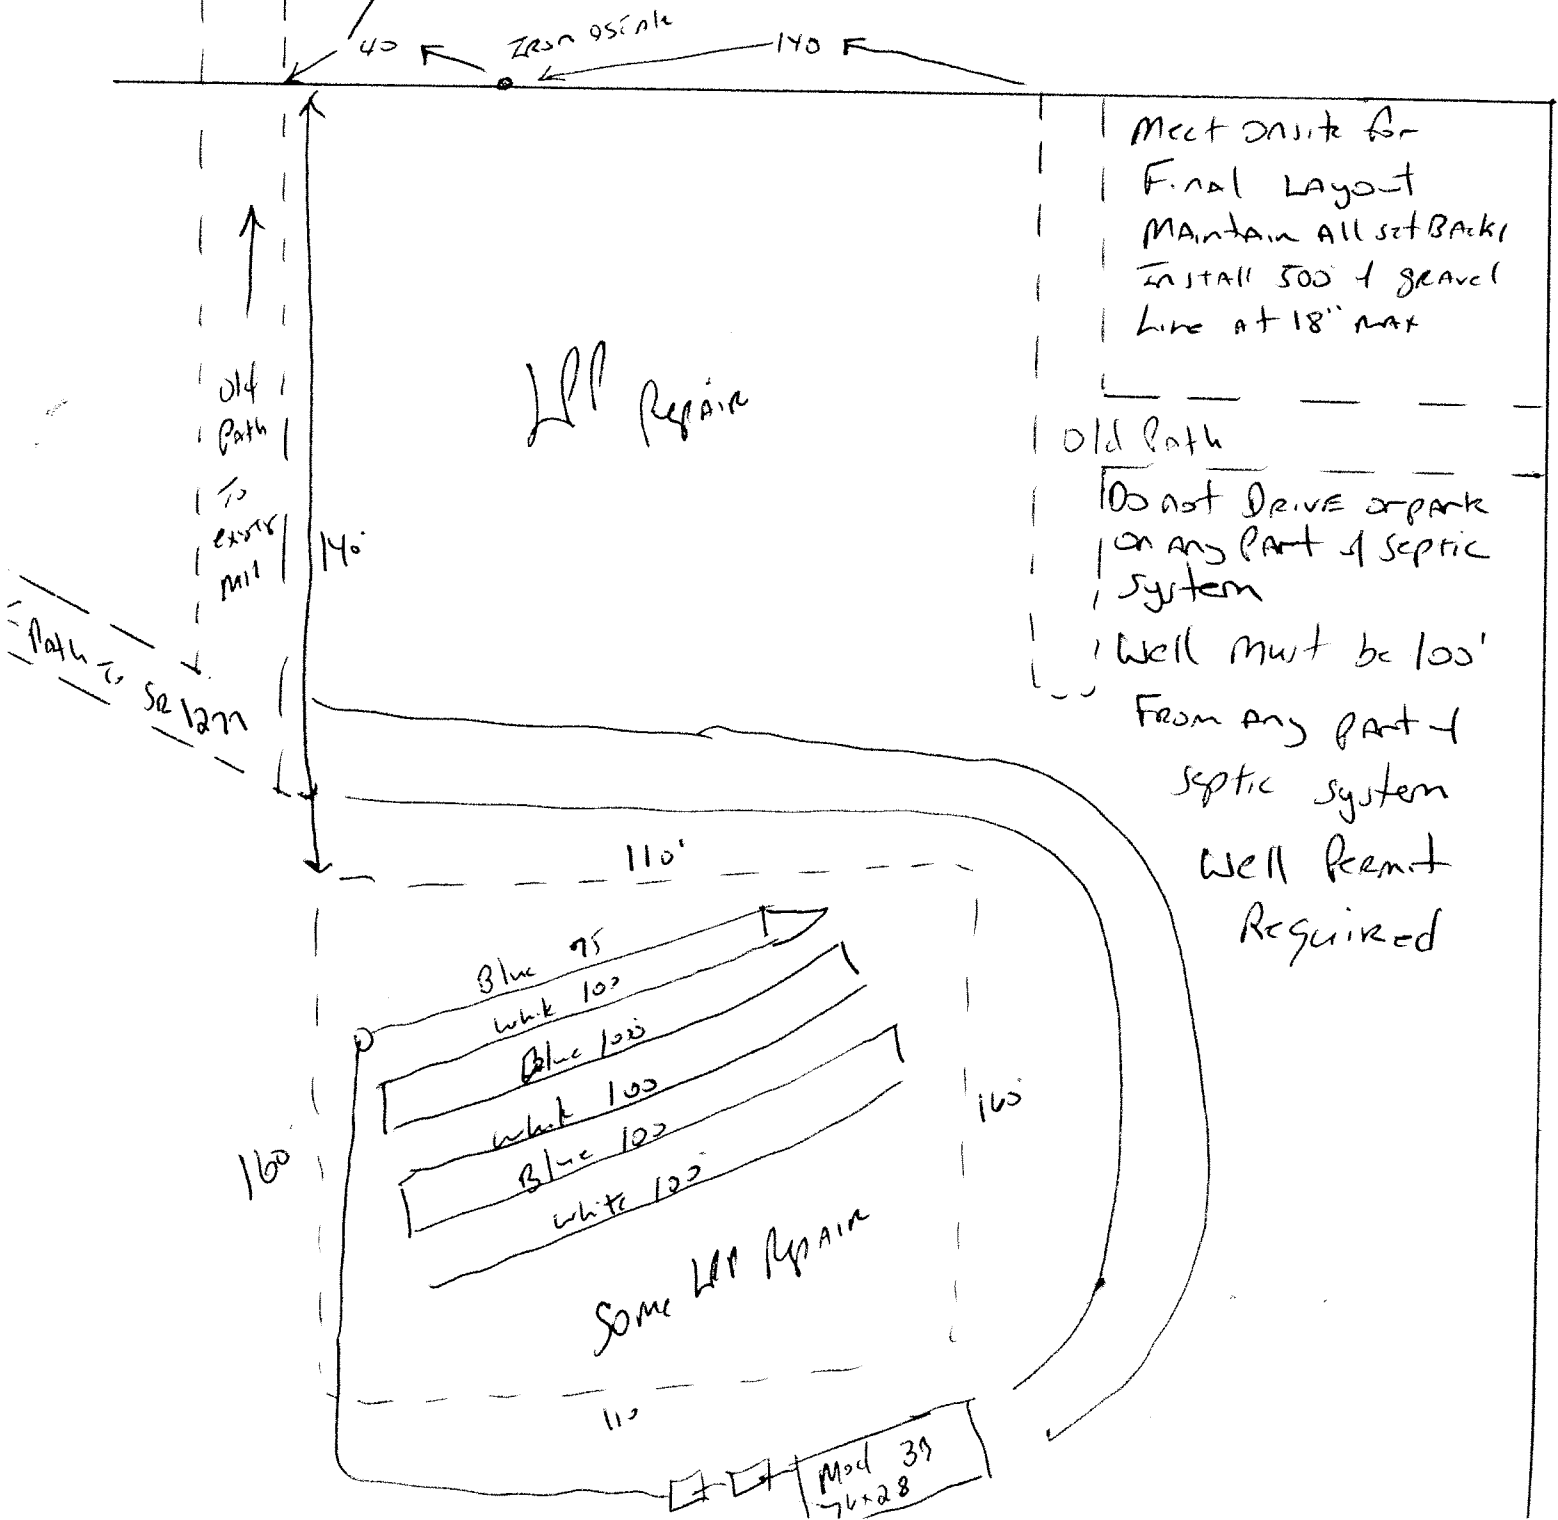 40
140
Meet Onsite for
Final Layout
Maintain All setBacks
Install 500' of gravel
Line at 18" max
LPP Repair
old
Path
To
140'
Old Path
Do not Drive or park
on Any Part of septic
system
Well Must be 100'
From Any part of
septic system
Well Permit
Required
Path To
SR
110'
Blue 95
white 100
Blue 100'
white 100
Blue 100
white 100'
160'
160'
Some LPP Repair
110
Mod